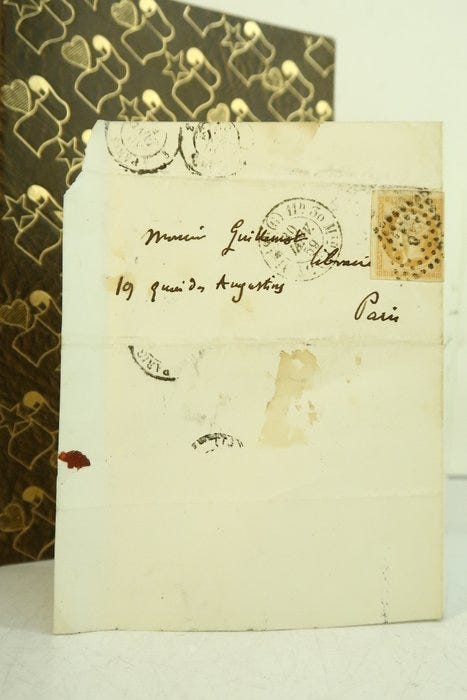 PARIS
Monsieur Guillemot
libraire
19 quai des Augustins
Paris
PARIS